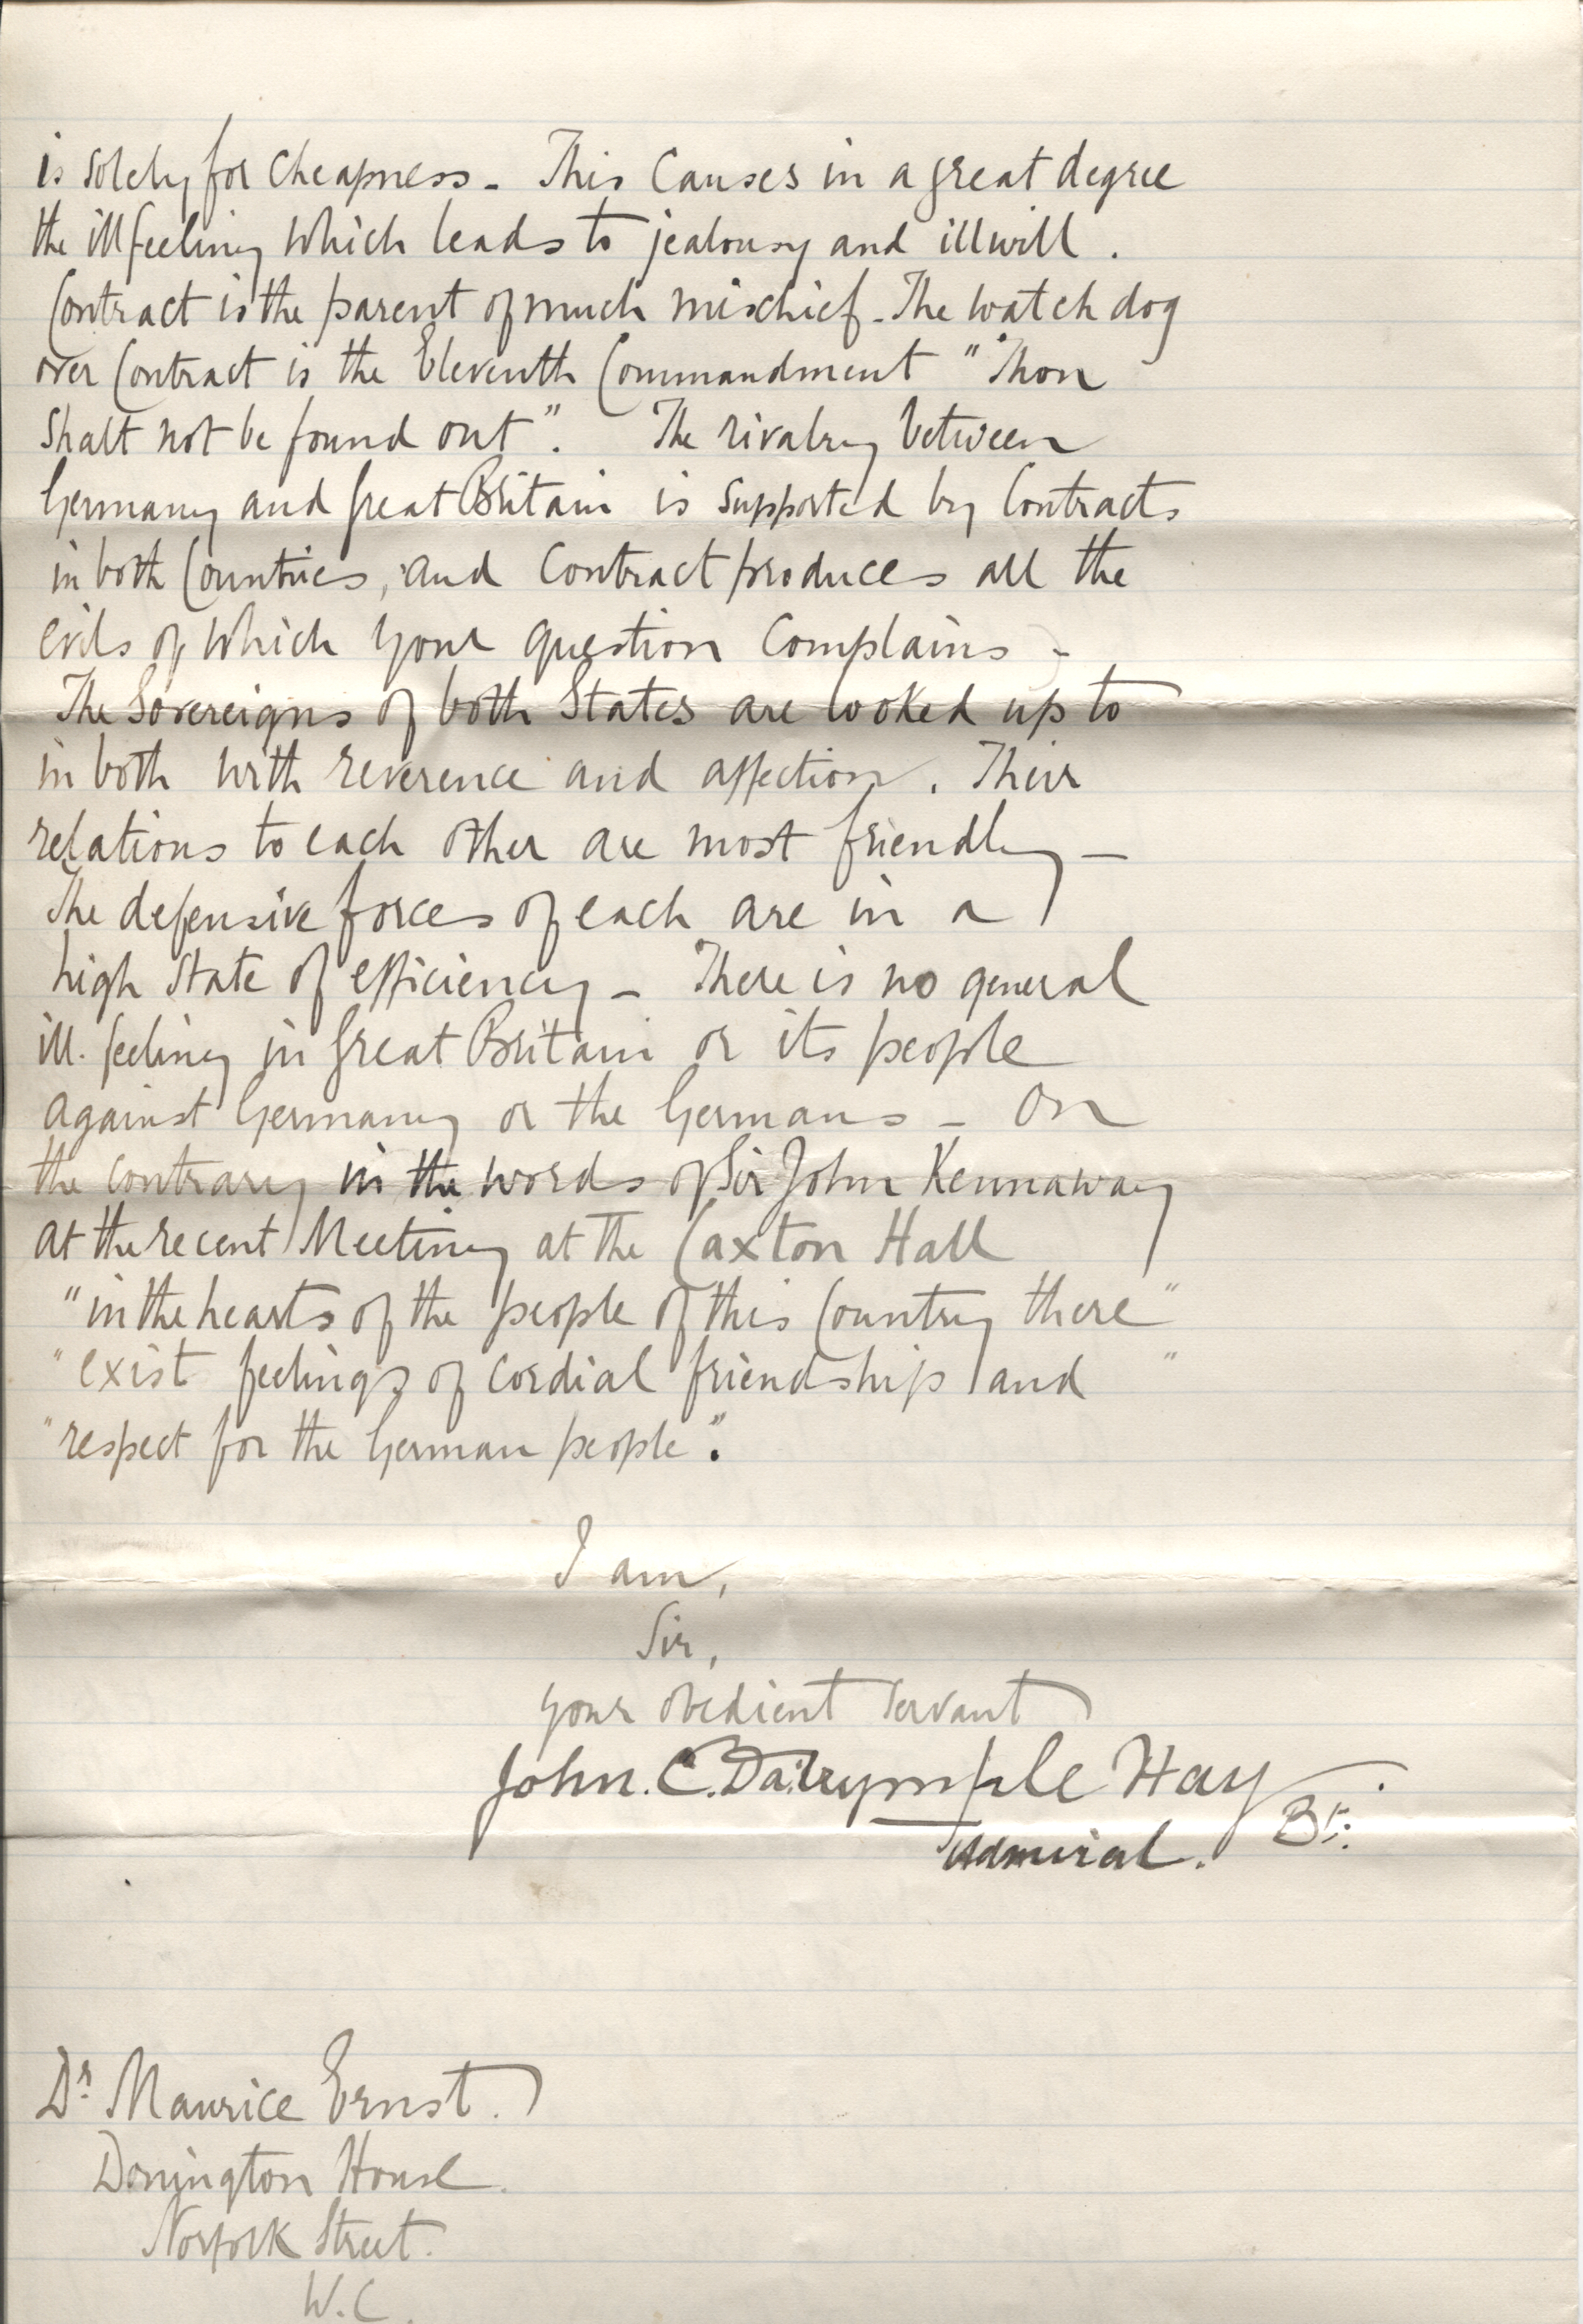 is solely for Cheapness - This Causes in a great degree
the ill feeling which leads to jealousy and illwill.
Contract is the parent of much mischief - The watch dog
over Contract is the Eleventh Commandment "Thou
Shalt not be found out". The rivalry between
Germany and Great Britain is supported by Contracts
in both Countries, and Contract produces all the
evils of which your question Complains -
The Sovereigns of both States are looked up to
in both with reverence and affection. Their
relations to each other are most friendly -
The defensive forces of each are in a
high State of efficiency - There is no general
ill-feeling in Great Britain or its people
against Germany or the Germans - On
the contrary in the words of Sir John Kennaway
at the recent Meeting at the Caxton Hall
"in the hearts of the people of this Country there"
"exist feelings of cordial friendship and"
"respect for the German people".
I am,
Sir,
your obedient Servant
John. C. Dalrymple Hay. Bt.
Admiral.
Dr Maurice Ernst.
Donington House.
Norfolk Street.
W.C.